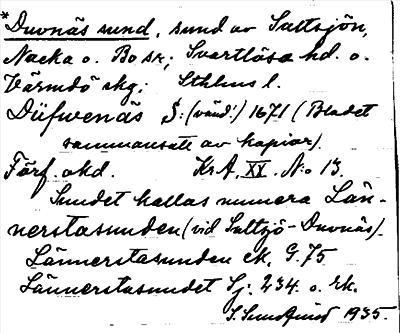 *Duvnäs sund, sund av Saltsjön,
Nacka o. Bo sn; Svartlösa hd. o.
Värmdö skg; Sthlms l.
Düfwenäs S: (vänd:) 1671 (Bladet
sammansatt av kopior).
Förf. okd. Kr.A. XX. N:o 13.
Sundet kallas numera Län-
nerstasunden (vid Saltsjö-Duvnäs).
Lännerstasunden ek. G. 75
Lännerstasundet Sj: 234 o. rk.
1935.